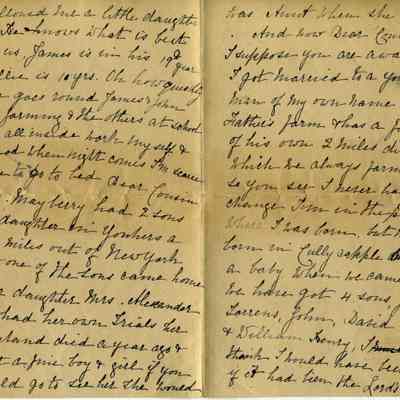 was Aunt when she
. And now Dear Cou
I suppose you are awa
I got married to a yo
Man of my own Name
Father's farm & has a f
of his own 2 miles di
which we always farm
so you see I never ha
change I'm in the p
where I was born. but
born in Cullycapple
a baby when we came
we have got 4 sons,
Torrens, John, David
& William Henry, I
thank I would have bee
if it had been the Lords
llowed me a little daughter
He knows what is best
us. James is in his 19th year
is 10 yrs. Oh how quickly
goes round James & John
farming & the others at school
all made work myself &
od when night comes I'm scarce
to go to bed Dear Cousin
. Mayberry had 2 sons
daughter on Yonkers a
miles out of New York
one of the sons came home
daughter Mrs. Alexander
had her own Trials her
sband died a year ago &
t a fine boy & girl if you
ld go to see her she would